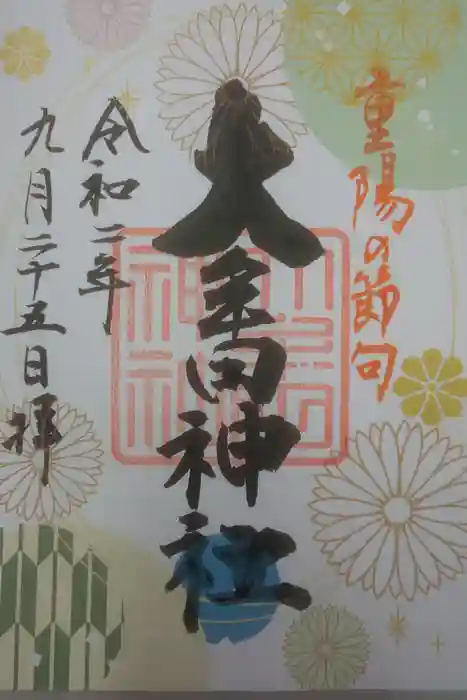 重陽の節句
大髙神社
令和二年
九月二十五日拝